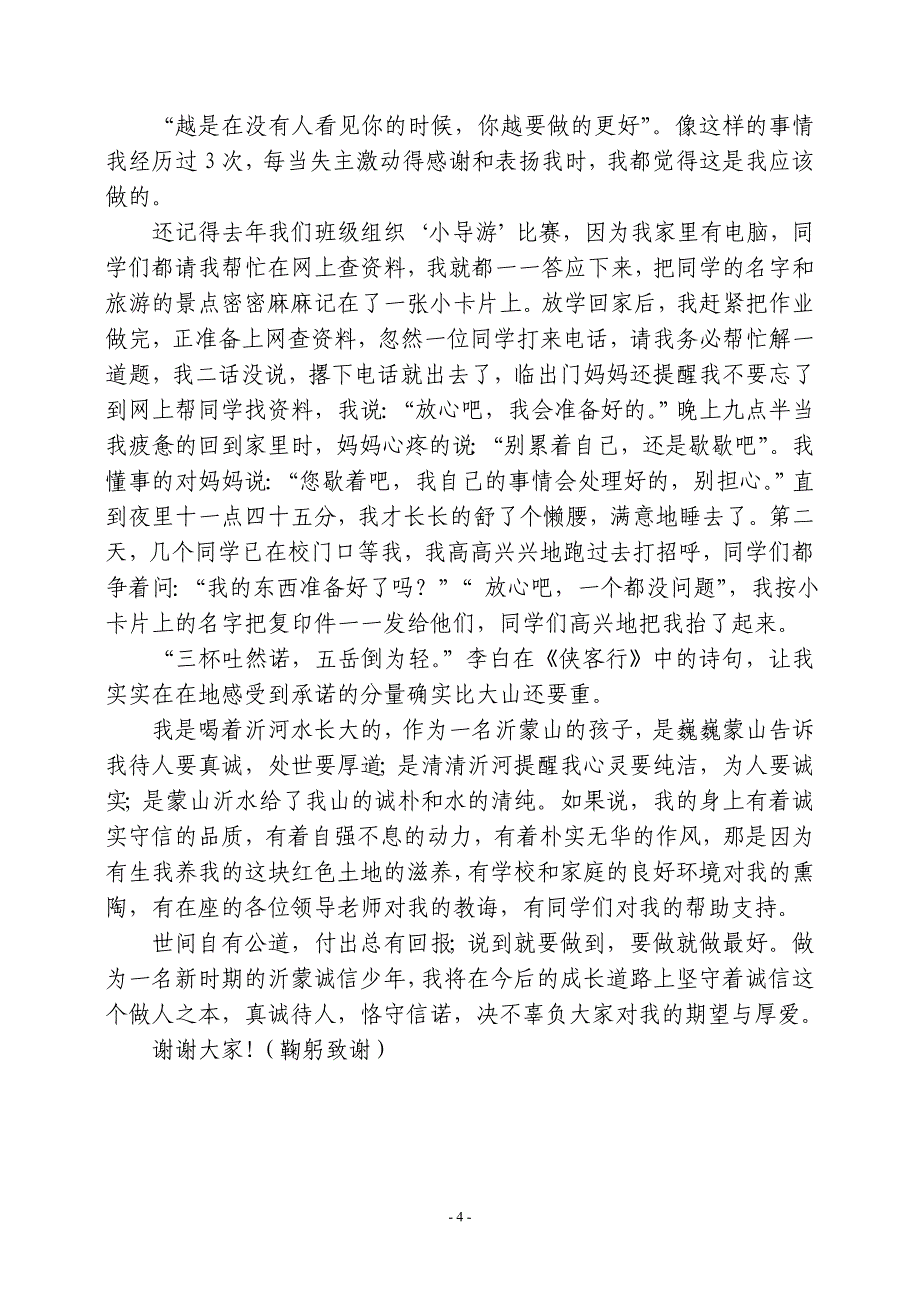 “越是在没有人看见你的时候，你越要做的更好”。像这样的事情
我经历过 3 次，每当失主激动得感谢和表扬我时，我都觉得这是我应该
做的。
还记得去年我们班级组织‘小导游’比赛，因为我家里有电脑，同
学们都请我帮忙在网上查资料，我就都一一答应下来，把同学的名字和
旅游的景点密密麻麻记在了一张小卡片上。放学回家后，我赶紧把作业
做完，正准备上网查资料，忽然一位同学打来电话，请我务必帮忙解一
道题，我二话没说，撂下电话就出去了，临出门妈妈还提醒我不要忘了
到网上帮同学找资料，我说：“放心吧，我会准备好的。”晚上九点半当
我疲惫的回到家里时，妈妈心疼的说：“别累着自己，还是歇歇吧”。我
懂事的对妈妈说：“您歇着吧，我自己的事情会处理好的，别担心。”直
到夜里十一点四十五分，我才长长的舒了个懒腰，满意地睡去了。第二
天，几个同学已在校门口等我，我高高兴兴地跑过去打招呼，同学们都
争着问：“我的东西准备好了吗？”“ 放心吧，一个都没问题”，我按小
卡片上的名字把复印件一一发给他们，同学们高兴地把我抬了起来。
“三杯吐然诺，五岳倒为轻。”李白在《侠客行》中的诗句，让我
实实在在地感受到承诺的分量确实比大山还要重。
我是喝着沂河水长大的，作为一名沂蒙山的孩子，是巍巍蒙山告诉
我待人要真诚，处世要厚道；是清清沂河提醒我心灵要纯洁，为人要诚
实；是蒙山沂水给了我山的诚朴和水的清纯。如果说，我的身上有着诚
实守信的品质，有着自强不息的动力，有着朴实无华的作风，那是因为
有生我养我的这块红色土地的滋养，有学校和家庭的良好环境对我的熏
陶，有在座的各位领导老师对我的教诲，有同学们对我的帮助支持。
世间自有公道，付出总有回报；说到就要做到，要做就做最好。做
为一名新时期的沂蒙诚信少年，我将在今后的成长道路上坚守着诚信这
个做人之本，真诚待人，恪守信诺，决不辜负大家对我的期望与厚爱。
谢谢大家！（鞠躬致谢）
- 4 -